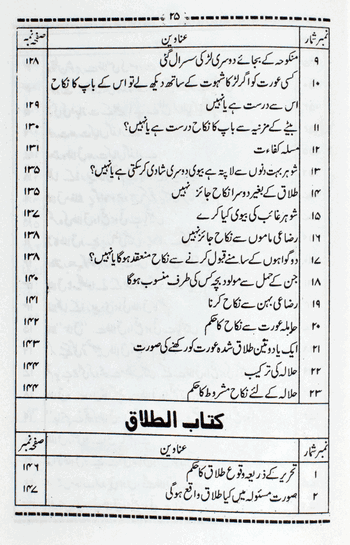 ۲۵
نمبر شمار عناوین صفحہ نمبر
۹ منکوحہ کے بجائے دوسری لڑکی سسرال گئی ۱۲۸
۱۰ کسی عورت کو اگر لڑکا شہوت کے ساتھ دیکھ لے تو اس کے باپ کا نکاح
اس سے درست ہے یا نہیں ۱۲۹
۱۱ بیٹے کے مزنیہ سے باپ کا نکاح درست ہے یا نہیں؟ ۱۳۰
۱۲ مسئلہ کفاءت ۱۳۱
۱۳ شوہر بہت دنوں سے لا پتہ ہے بیوی دوسری شادی کر سکتی ہے یا نہیں؟ ۱۳۵
۱۴ طلاق کے بغیر دوسرا نکاح جائز نہیں ۱۳۵
۱۵ شوہر غائب کی بیوی کیا کرے ۱۳۷
۱۶ رضاعی ماموں سے نکاح جائز نہیں ۱۳۸
۱۷ دو گواہوں کے سامنے قبول کرنے سے نکاح منعقد ہوگا یا نہیں؟ ۱۳۸
۱۸ جن کے حمل سے مولود بچہ کس کی طرف منسوب ہوگا ۱۴۰
۱۹ رضاعی بہن سے نکاح کرنا ۱۴۱
۲۰ حاملہ عورت سے نکاح کا حکم ۱۴۲
۲۱ ایک یا دو تین طلاق شدہ عورت کو رکھنے کی صورت ۱۴۳
۲۲ حلالہ کی ترکیب ۱۴۴
۲۳ حلالہ کے لئے نکاح مشروط کا حکم ۱۴۴
کتاب الطلاق
نمبر شمار عناوین صفحہ نمبر
۱ تحریر کے ذریعہ وقوع طلاق کا حکم ۱۴۶
۲ صورت مسئولہ میں کیا طلاق واقع ہوگی ۱۴۷